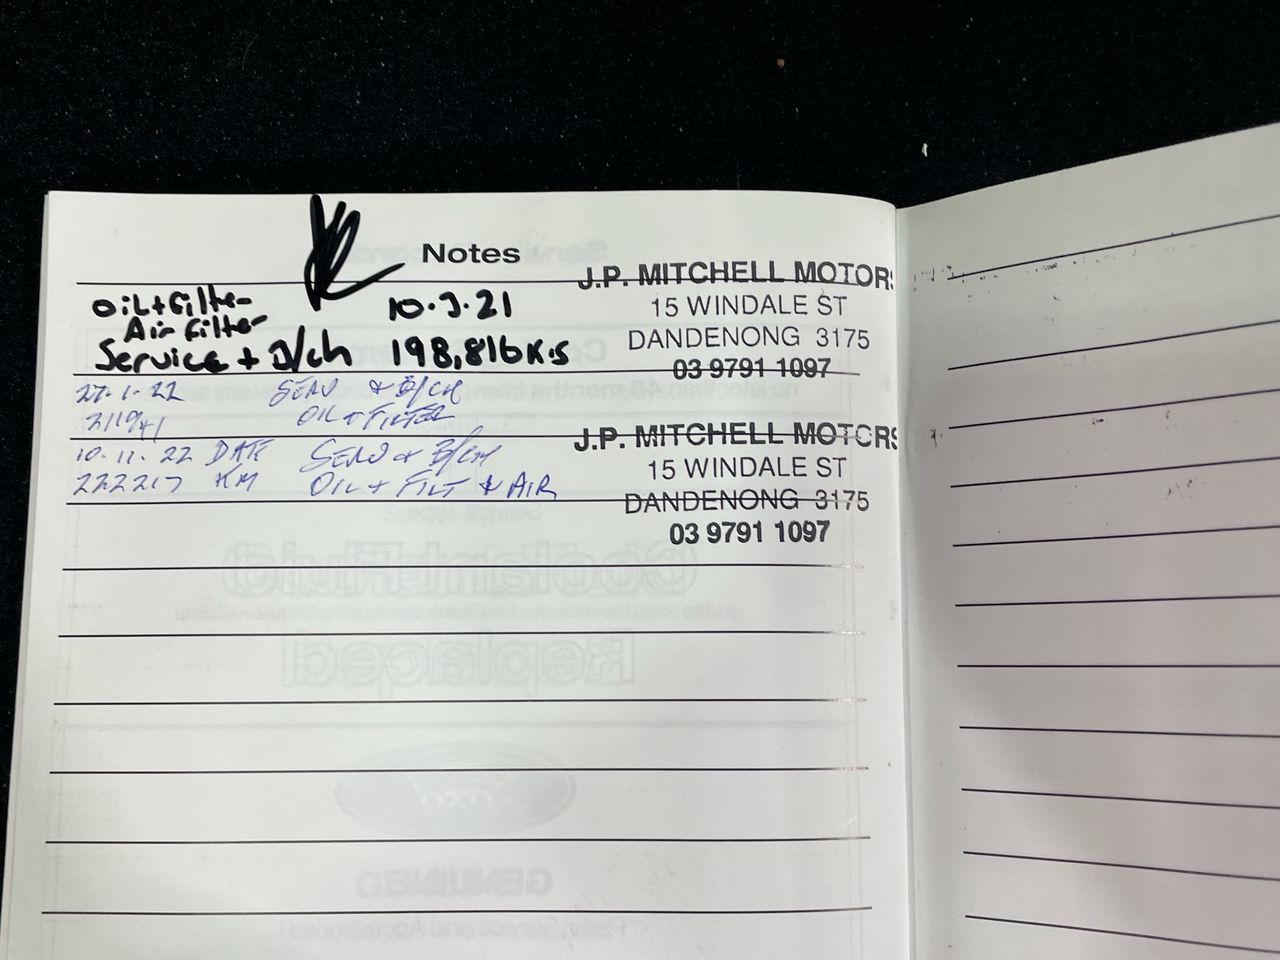 Notes
J.P. MITCHELL MOTORS
15 WINDALE ST
DANDENONG 3175
03 9791 1097
Oil + Filter
Air Filter
10.3.21
Service + B/ch 198,816K.S
27.1.22 SERV & B/CH
211941 OIL + FILTER
10.11.22 DATE SERV & B/CH
222217 KM OIL + FILT & AIR
J.P. MITCHELL MOTORS
15 WINDALE ST
DANDENONG 3175
03 9791 1097